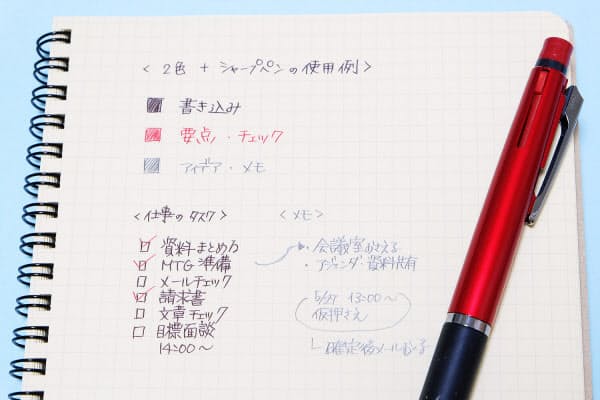 〈 2色 + シャープペンの使用例 〉
書き込み
要点・チェック
アイデア・メモ
〈仕事のタスク〉
資料まとめ方
MTG 準備
メールチェック
請求書
文章チェック
目標面談
14:00〜
〈メモ〉
・会議室おさえる
・アジェンダ・資料共有
13:00〜
仮押さえ
確定後メールする